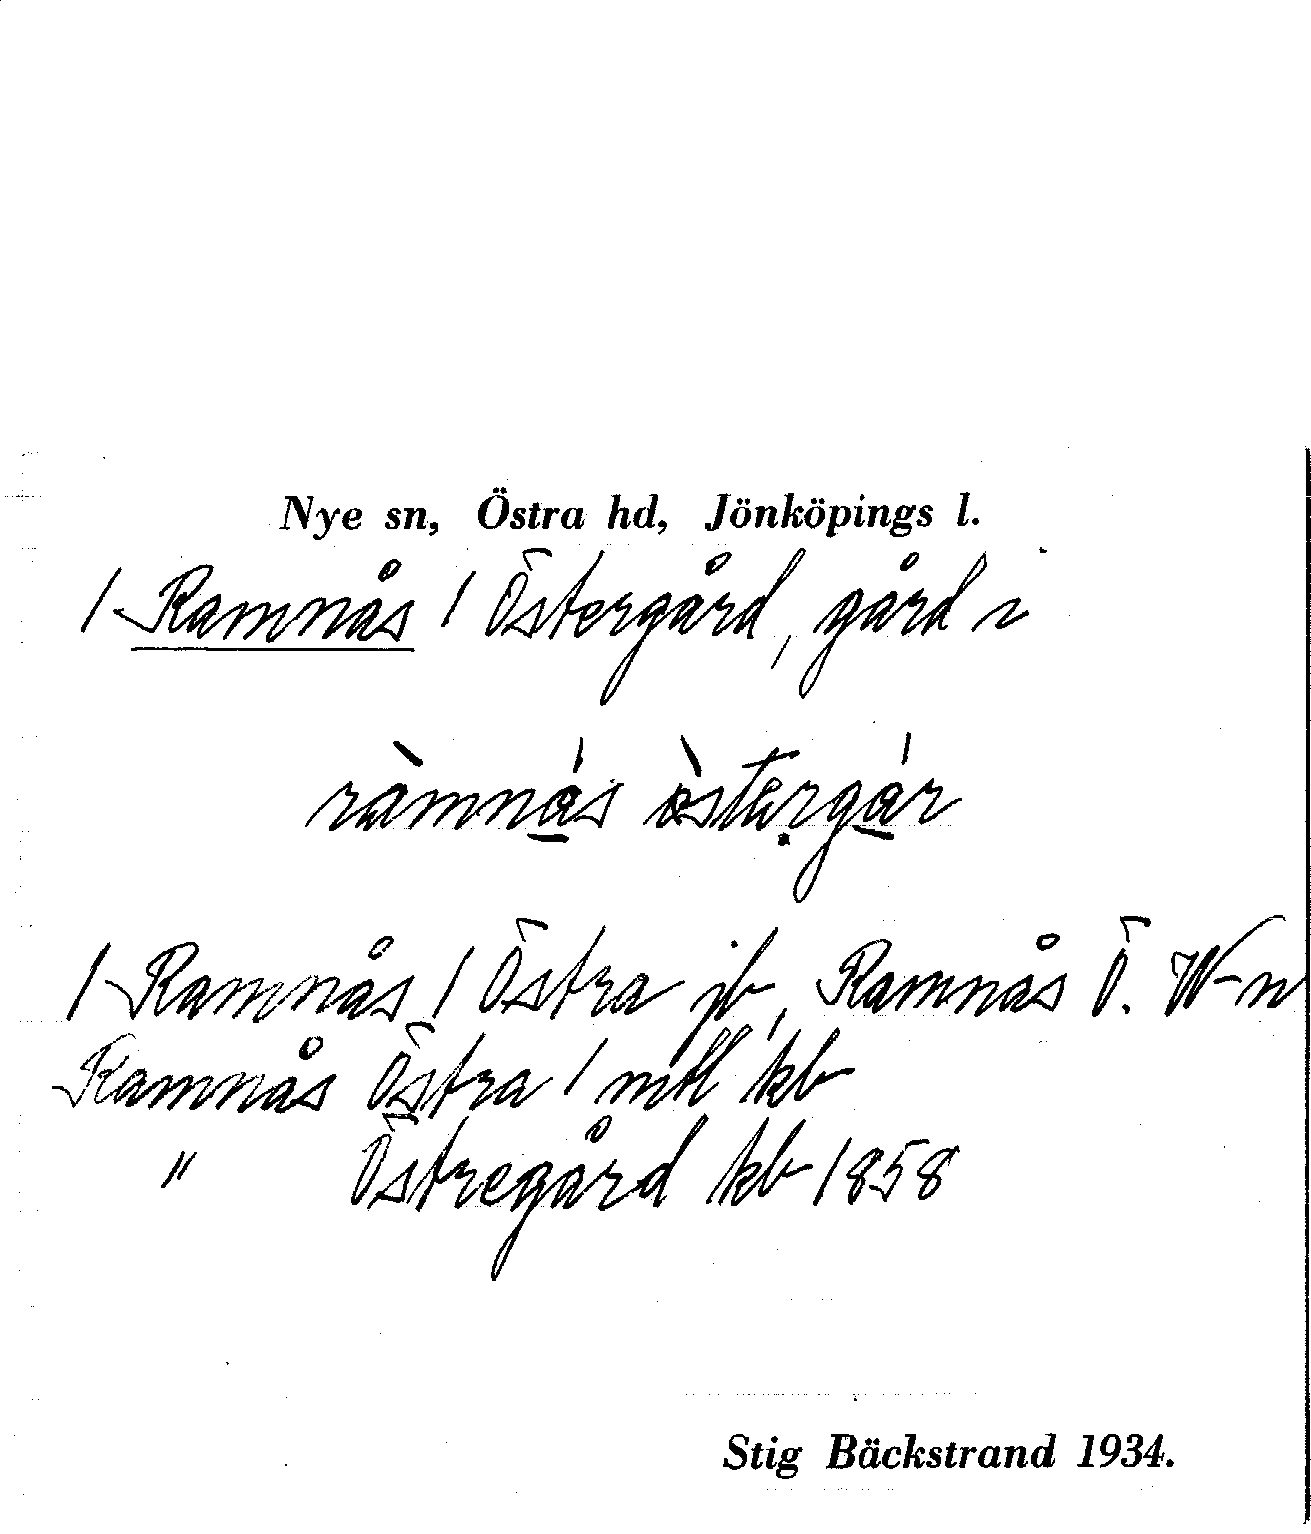 Nye sn, Östra hd, Jönköpings l.
/ Ramnås / Östergård, gård i
ràmnás òstergár
/ Ramnås / Östra jb, Ramnås Ö. W-n
Ramnås Östra 1 mtl kb
" Östregård kb 1858
Stig Bäckstrand 1934.